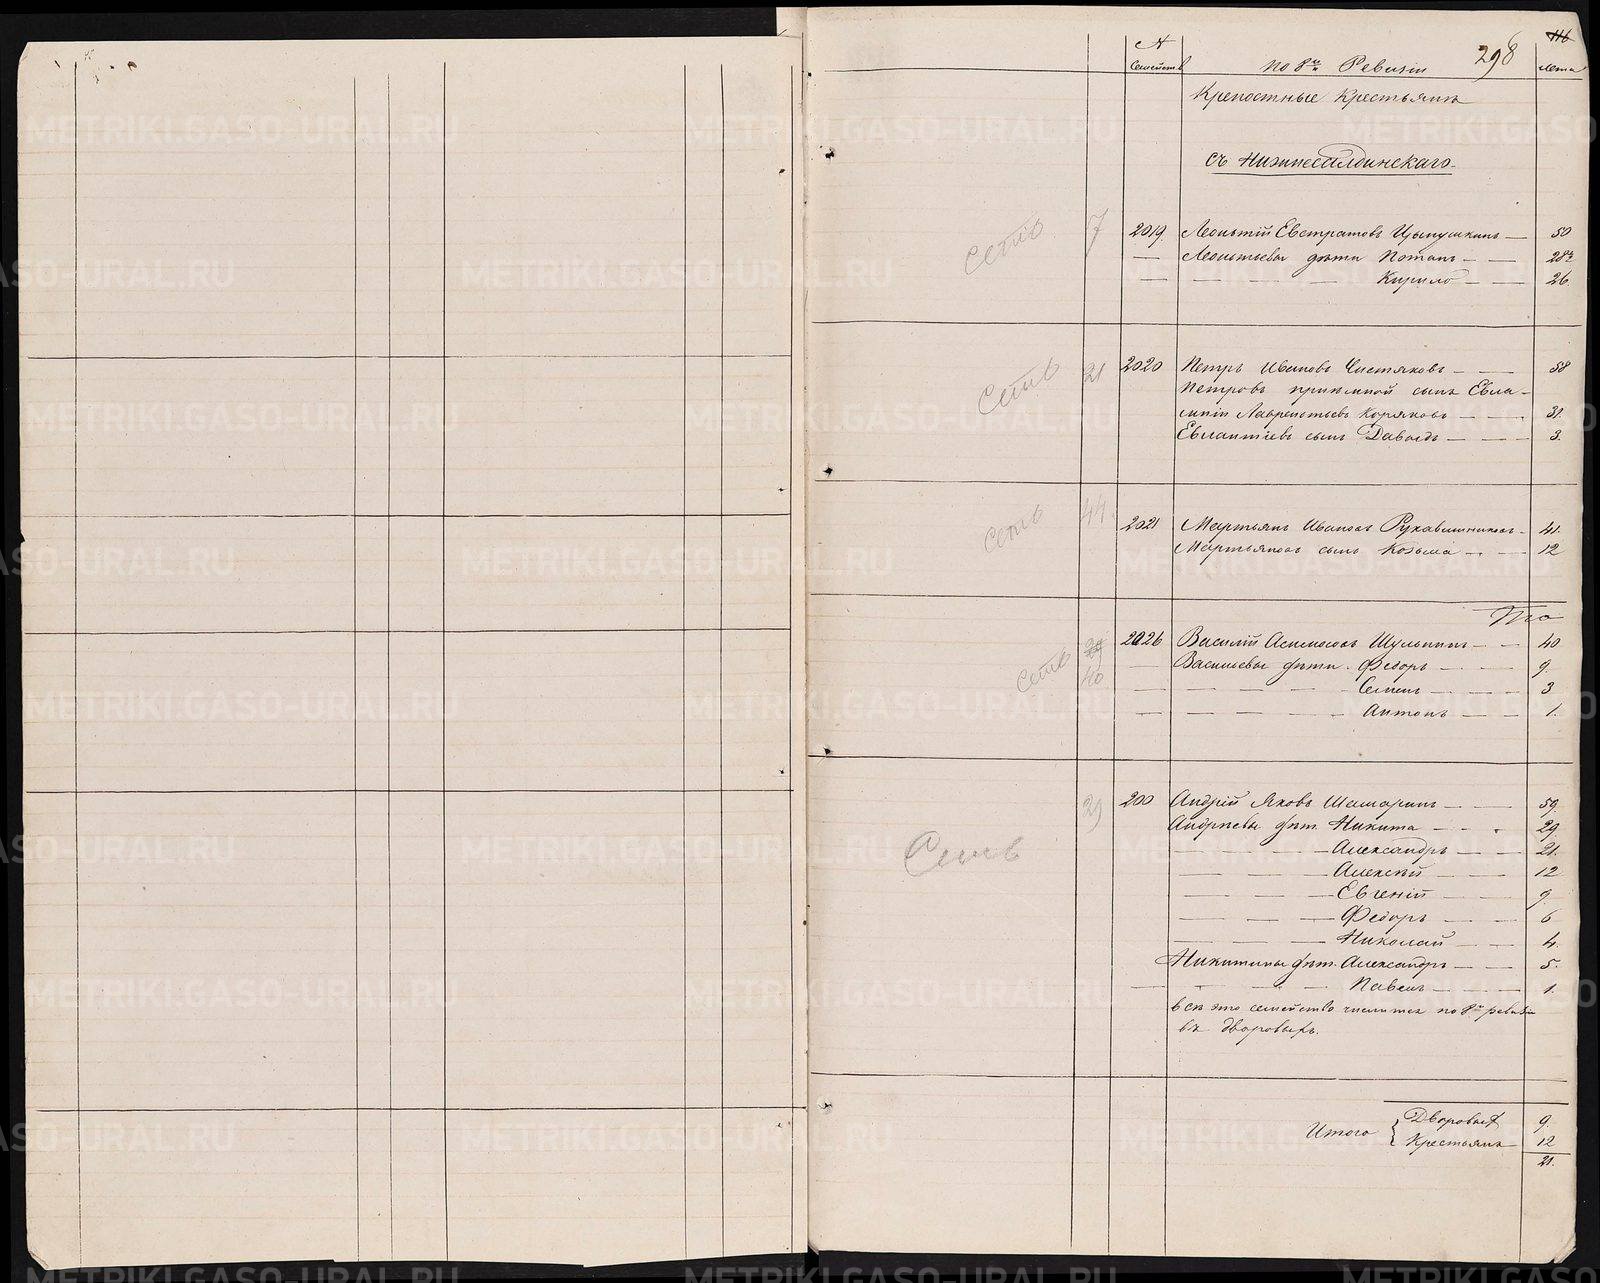 116
№ семейств
по 8й Ревизіи
298
лета
Крепостные Крестьянъ
съ Нижнесалдинскаго
Сеть 7 2019 Леонтій Евстратовъ Цыпушкинъ — 50
— Леонтьевы дѣти Потапъ — — 28½
— — — — Кирило — — 26
Сеть 21 2020 Петръ Ивановъ Чистяковъ — — 58
Петровъ приемной сынъ Евла-
мпій Лаврентьевъ Коряковъ — — 31.
Евлампіевъ сынъ Давыдъ — — — 3.
сеть 44 2021 Мартьянъ Ивановъ Рукавишниковъ — 41.
Мартьяновъ сынъ Козьма — — 12
сеть 40 2026 Василій Шульпинъ — — 40
— Васильевы дѣти. Федоръ — — — 9
— — — — Семенъ — — — 3
— — — — Антонъ — — — 1.
Сеть 29 200 Андрій Яковъ Шамаринъ — — — 59
Андреевы дѣт. Никита — — — 29
— — — Александръ — — 21.
— — — Алексѣй — — — 12
— — — Евгеній — — — 9
— — — Федоръ — — — 6
— — — Николай — — 4.
Никитины дѣт. Александръ — — — 5.
— — — — Павелъ — — — 1.
все это семейство числится по 8й ревизіи
въ дворовыхъ.
Итого { Дворовыхъ 9.
Крестьянъ — 12
21.
METRIKI.GASO-URAL.RU